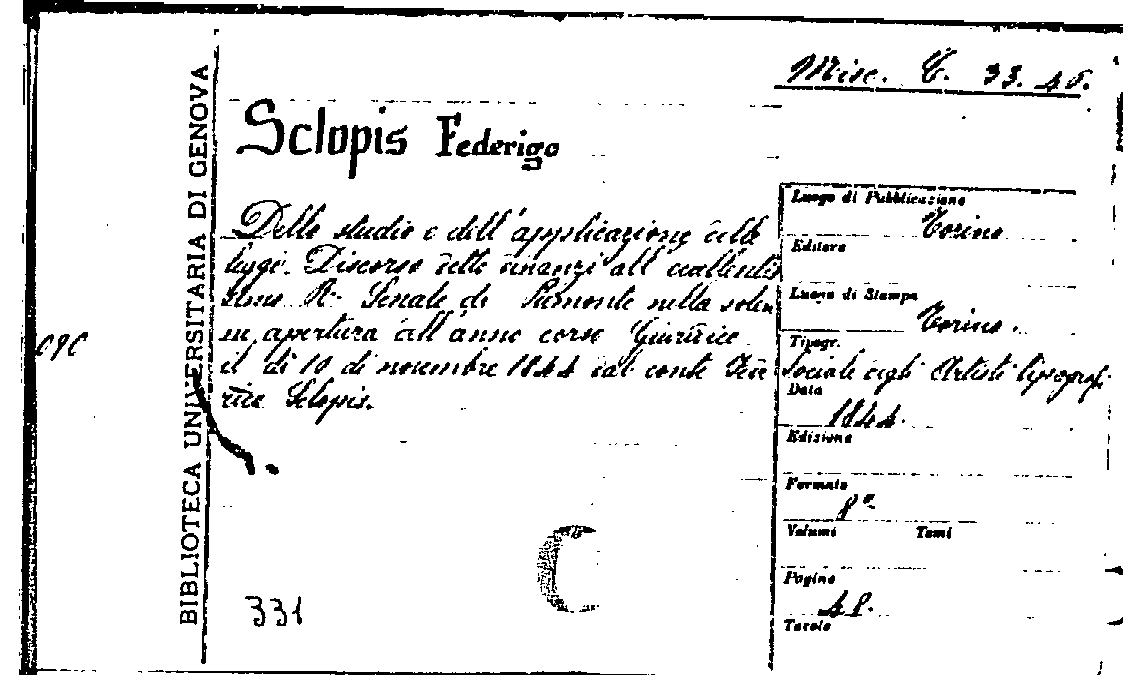 Misc. C. 33. 48.
BIBLIOTECA UNIVERSITARIA DI GENOVA
Sclopis Federigo
Dello studio e dell'applicazione delle
leggi. Discorso detto innanzi all'eccellentis
simo R. Senato di Piemonte nella solen
ne apertura dell'anno corso Giuridico
il di 10 di novembre 1844 dal conte Fede
rico Sclopis.
331
C
Luogo di Pubblicazione
Torino
Editore
Luogo di Stampa
Torino.
Tipogr.
Sociale degli Artisti tipografi
Data
1844.
Edizione
Formato
8°
Volumi Tomi
Pagine
48.
Tavole